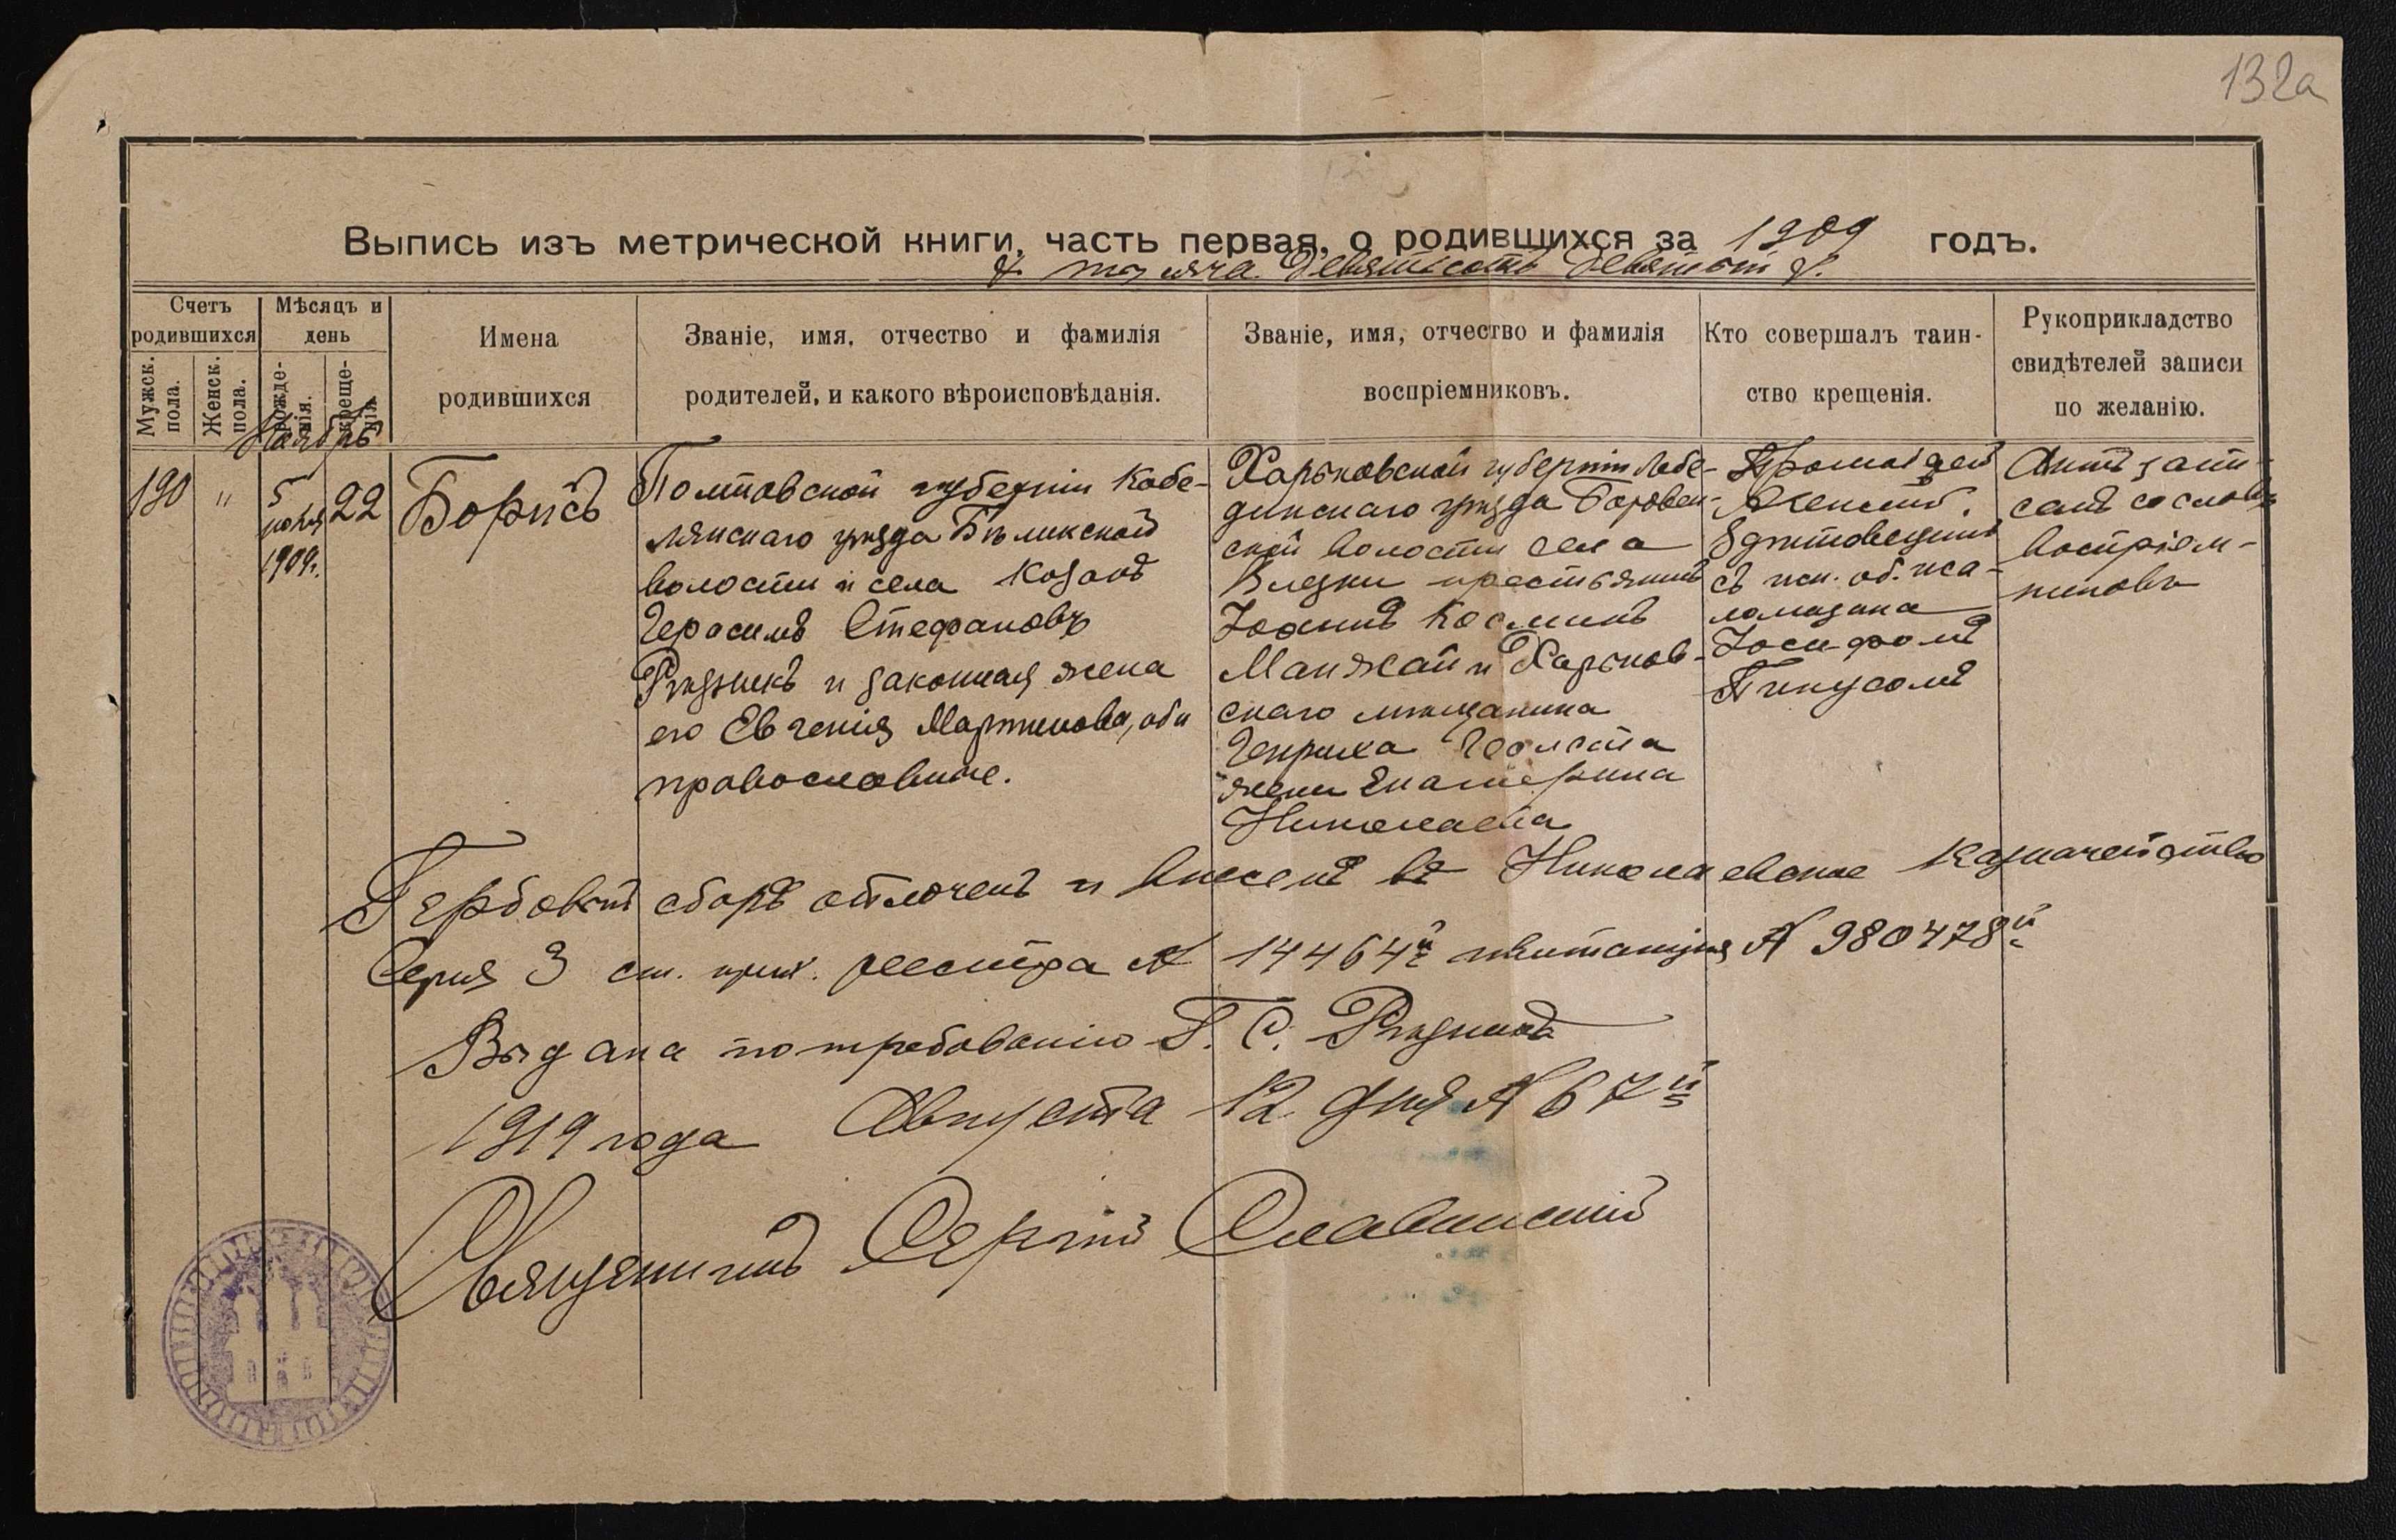 132а
Выпись изъ метрической книги, часть первая, о родившихся за 1909 годъ.
тысяча девятьсотъ девятый
Счетъ родившихся
Мѣсяцъ и день
Имена родившихся
Званіе, имя, отчество и фамилія родителей, и какого вѣроисповѣданія.
Званіе, имя, отчество и фамилія воспріемниковъ.
Кто совершалъ таинство крещенія.
Рукоприкладство свидѣтелей записи по желанію.
Мужск. пола.
Женск. пола.
рожденія.
крещенія
Ноябрь
190
"
5
1909г.
22
Борисъ
Полтавской губерніи Кобе-
лякскаго уѣзда Бѣликской
волости и села Козакъ
Герасимъ Стефановъ
Рѣзникъ и законная жена
его Евгенія Мартинова, оби
православные.
Харьковской губерніи Лебе-
динскаго уѣзда Боровен-
ской волости села
крестьянинъ
Іоаннъ Косминъ
Манжай и Харьков-
скаго мѣщанина
Генриха
жена Екатерина
Николаевна
Протоіерей
съ исп. об. пса-
ломщика
Іосифомъ
Актъ запи-
санъ со словъ
воспріем-
никовъ
Гербовый сборъ оплоченъ и внесенъ въ Николаевское Казначейство
Серія 3 ст. прих. реестра № 14464й квитанція № 980478й
Выдана по требованію Г. С. Рѣзника
1919 года Августа 12 дня № 67й
Священникъ Сергій Славинскій